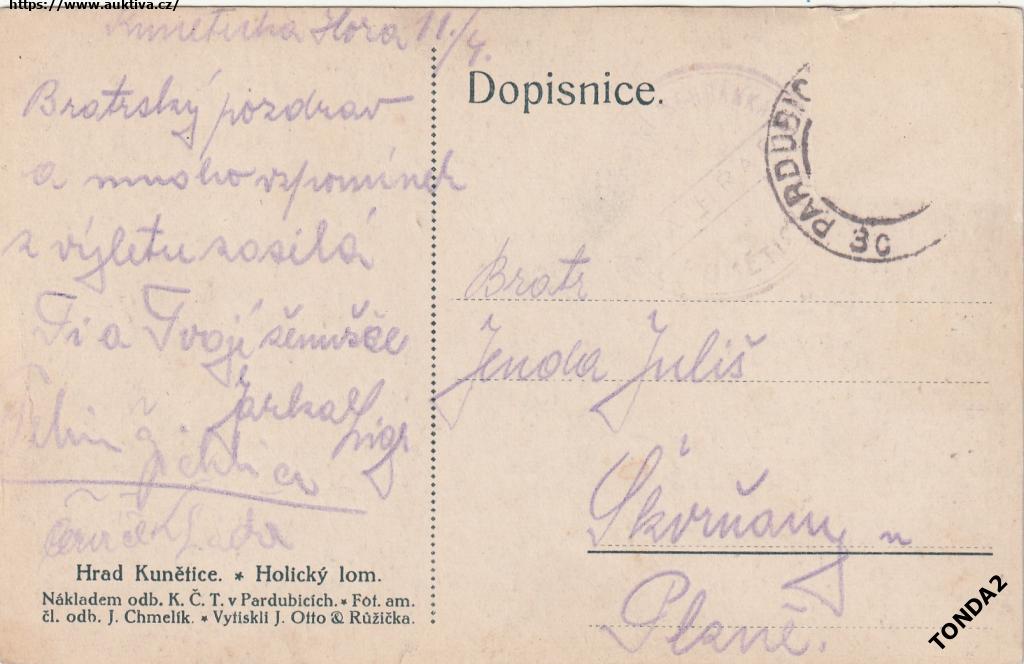 https://www.auktiva.cz/
Kunětická Hora 11./4.
Bratrský pozdrav
a mnoho vzpomínek
z výletu zasílá
Ti a Tvojí
Jarka
Lada
Hrad Kunětice. * Holický lom.
Nákladem odb. K. Č. T. v Pardubicích. * Fot. am.
čl. odb. J. Chmelík. * Vytiskli J. Otto & Růžička.
Dopisnice.
PARDUBIC
Bratr
Jenda Juliš
Škvrňany u
Plzně.
TONDA2